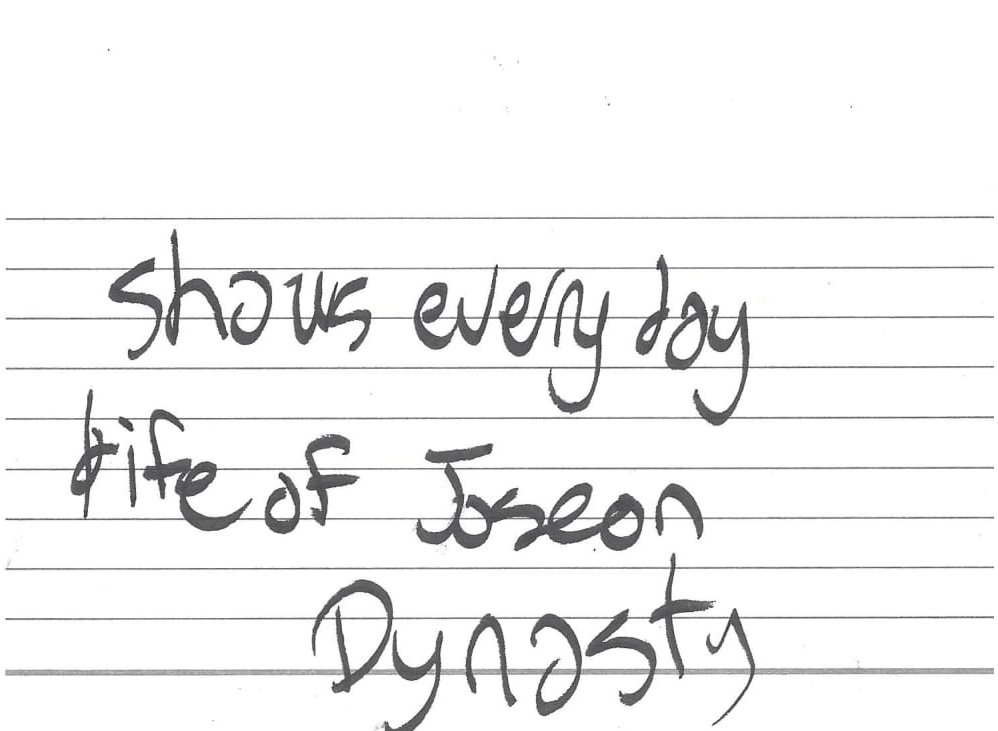 shows everyday
life of Joseon
Dynasty